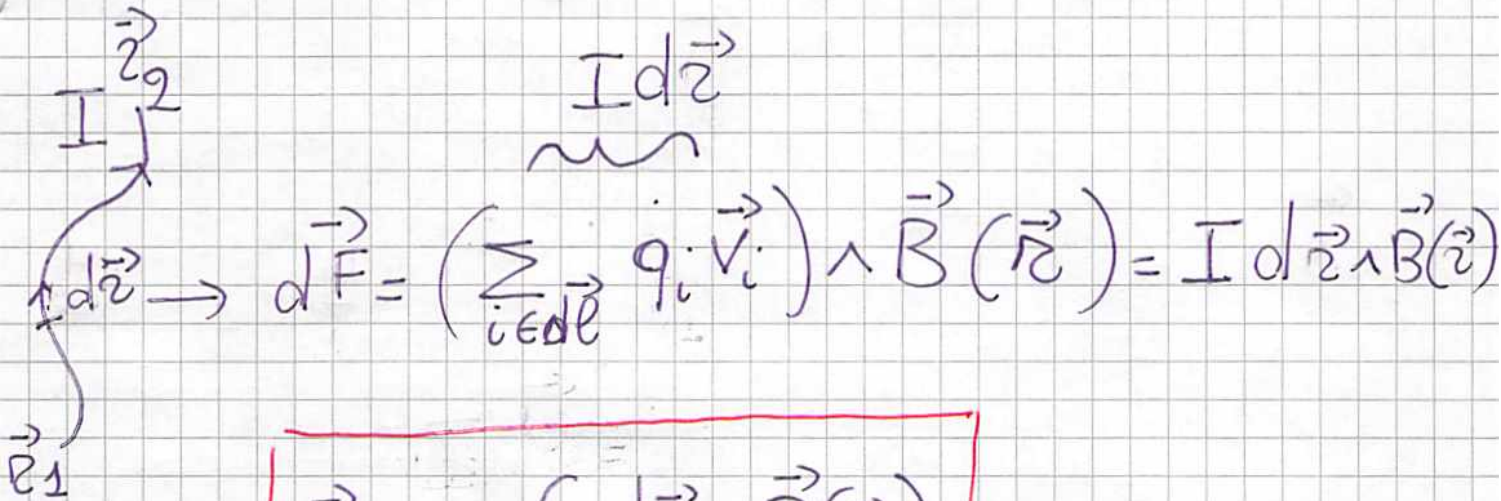 I r⃗₂
I dr⃗
dr⃗ → dF⃗ = (∑_{i∈dℓ⃗} qᵢ v⃗ᵢ) ∧ B⃗(r⃗) = I dr⃗ ∧ B⃗(r⃗)
r⃗1